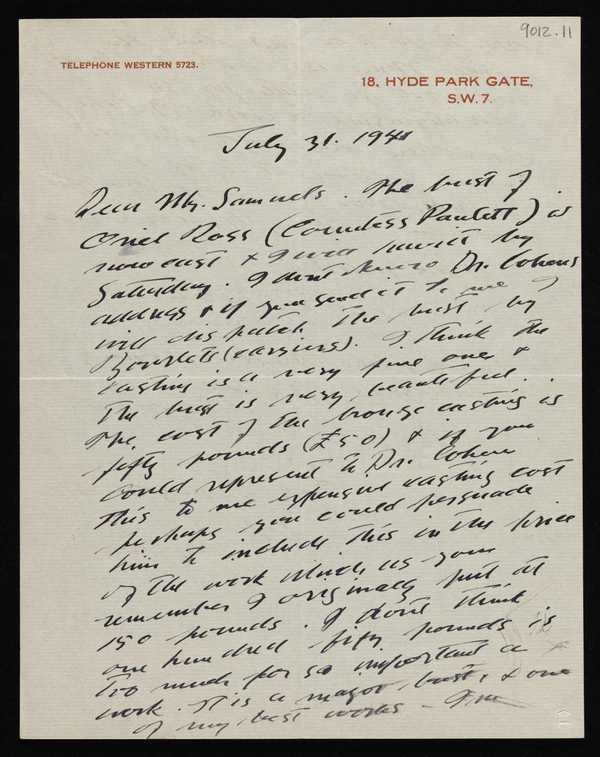 9012.11
TELEPHONE WESTERN 5723.
18, HYDE PARK GATE,
S.W.7.
July 31. 1941
Dear Mr. Samuels. The bust of
Oriel Ross (Countess Paulett) is
now cast & I will have it by
Saturday. I don't know Dr. Cohens
address & if you send it to me I
will dispatch the bust by
Bourlets (carriers). I think the
casting is a very fine one &
the bust is very beautiful.
The cost of the bronze casting is
fifty pounds (£50) & if you
could represent to Dr. Cohen
this to me expensive casting cost
perhaps you could persuade
him to include this in the price
of the work which as you
remember I originally put at
150 pounds. I don't think
one hundred fifty pounds is
too much for so important a
work. It is a major bust, & one
of my best works -